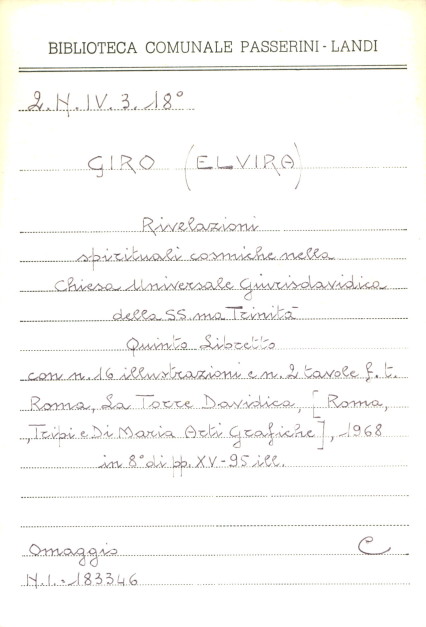 BIBLIOTECA COMUNALE PASSERINI-LANDI
2.N.IV.3.18°
GIRO (ELVIRA)
Rivelazioni
spirituali cosmiche nella
Chiesa Universale Giurisdavidica
della SS.ma Trinità
Quinto Libretto
con n. 16 illustrazioni e n. 2 tavole f. t.
Roma, La Torre Davidica, [Roma,
Tripi e Di Maria Arti Grafiche], 1968
in 8° di pp. XV-95 ill.
Omaggio C
N.I.-183346